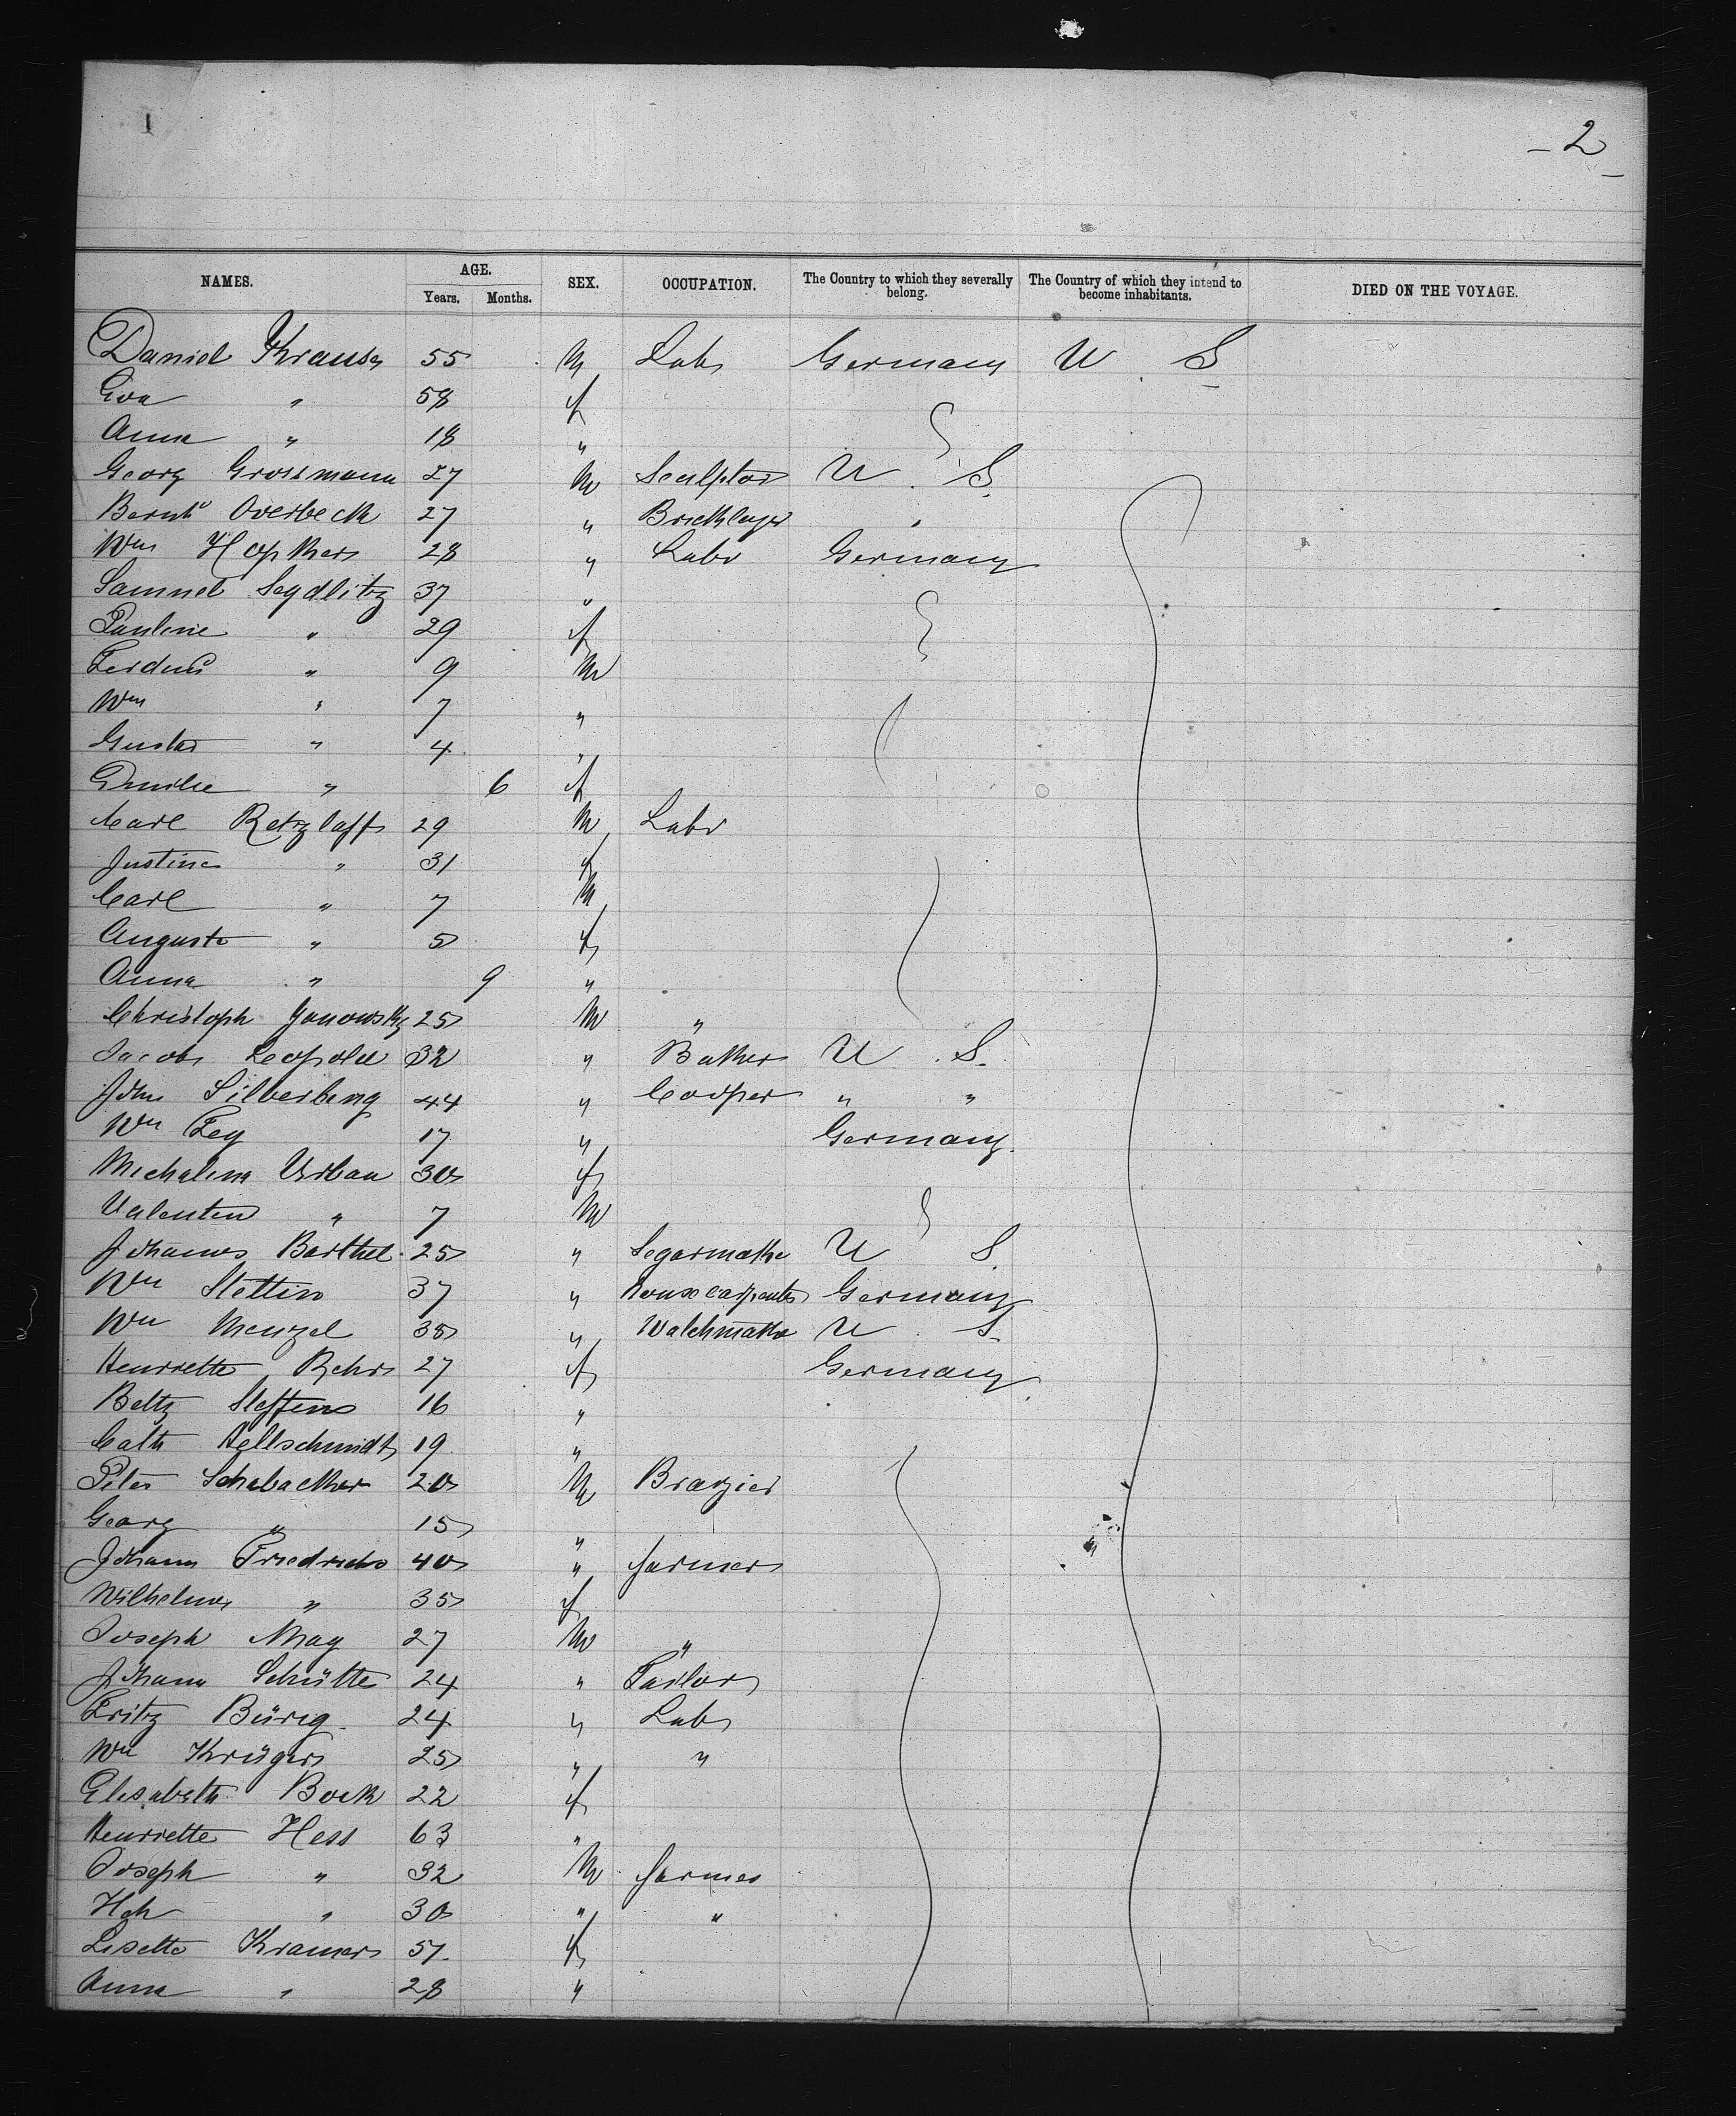 1
- 2 -
NAMES. AGE. Years. Months. SEX. OCCUPATION. The Country to which they severally belong. The Country of which they intend to become inhabitants. DIED ON THE VOYAGE.
Daniel Krause 55 M Labr Germany U S
Eva " 58 f
Anna " 18 "
Georg Grossmann 27 M Sculptor U. S.
Bernh Overbeck 27 " Bricklayer "
Wm Hopker 28 " Labr Germany
Samuel Seydlitz 37 "
Pauline " 29 f
Ferdind " 9 M
Wm " 7 "
Gustav " 4 "
Emilie " 6 f
Carl Retzlaff 29 M Labr
Justine " 31 f
Carl " 7 M
Auguste " 5 f
Anna " 9 "
Christoph Janowsky 25 M "
Jacob Leopold 32 " Baker U. S.
John Silberberg 44 " Cooper " "
Wm Fey 17 " Germany.
Michalina Urban 30 f
Valentin " 7 M
Johannes Barthel 25 " Segarmaker U S.
Wm Stettin 37 " Housecarpenter Germany
Wm Menzel 38 " Watchmaker U. S.
Henriette Rehr 27 f Germany
Betty Steffens 16 "
Cath Hellschmidt 19 "
Peter Schabacker 20 M Brazier
Georg " 15 "
Johann Friedrichs 40 " farmer
Wilhelm " 35 f
Joseph May 27 M "
Johann Schütte 24 " Tailor
Fritz Bürig 24 " Lab
Wm Krüger 25 " "
Elisabeth Bock 22 f
Henriette Hess 63 "
Joseph " 32 M farmer
Hch " 30 " "
Lisette Kramer 57 f
Anna " 28 "